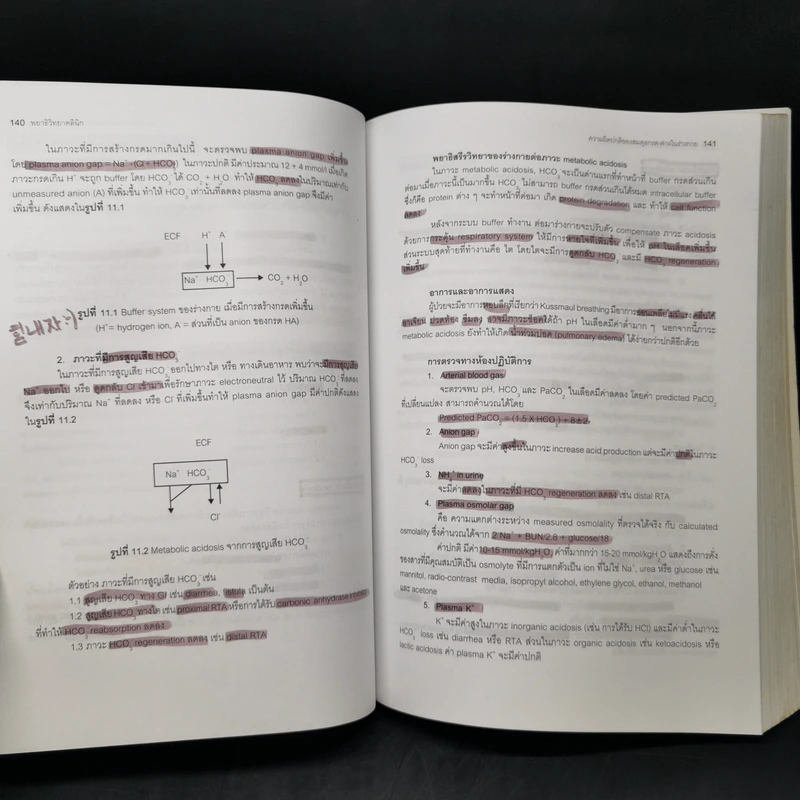 140 พยาธิวิทยาคลินิก
ในภาวะที่มีการสร้างกรดมากเกินไปนี้ จะตรวจพบ plasma anion gap เพิ่มขึ้น
โดย plasma anion gap = Na⁺-(Cl⁻+ HCO₃⁻) ในภาวะปกติ มีค่าประมาณ 12 ± 4 mmol/l เมื่อเกิด
ภาวะกรดเกิน H⁺ จะถูก buffer โดย HCO₃⁻ ได้ CO₂ + H₂O ทำให้ HCO₃⁻ ลดลงในปริมาณเท่ากับ
unmeasured anion (A⁻) ที่เพิ่มขึ้น ทำให้ HCO₃⁻ เท่านั้นที่ลดลง plasma anion gap จึงมีค่า
เพิ่มขึ้น ดังแสดงในรูปที่ 11.1
ECF H⁺ A⁻
Na⁺ HCO₃⁻ CO₂ + H₂O
힘내자 :-)
รูปที่ 11.1 Buffer system ของร่างกาย เมื่อมีการสร้างกรดเพิ่มขึ้น
(H⁺= hydrogen ion, A⁻ = ส่วนที่เป็น anion ของกรด HA)
2. ภาวะที่มีการสูญเสีย HCO₃⁻
ในภาวะที่มีการสูญเสีย HCO₃⁻ ออกไปทางไต หรือ ทางเดินอาหาร พบว่าจะมีการสูญเสีย
Na⁺ ออกไป หรือ ดูดกลับ Cl⁻ เข้ามาเพื่อรักษาภาวะ electroneutral ไว้ ปริมาณ HCO₃⁻ ที่ลดลง
จึงเท่ากับปริมาณ Na⁺ ที่ลดลง หรือ Cl⁻ ที่เพิ่มขึ้นทำให้ plasma anion gap มีค่าปกติดังแสดง
ในรูปที่ 11.2
ECF
Na⁺ HCO₃⁻
Cl⁻
รูปที่ 11.2 Metabolic acidosis จากการสูญเสีย HCO₃⁻
ตัวอย่าง ภาวะที่มีการสูญเสีย HCO₃⁻ เช่น
1.1 สูญเสีย HCO₃⁻ ทาง GI เช่น diarrhea, fistula เป็นต้น
1.2 สูญเสีย HCO₃⁻ ทางไต เช่น proximal RTA หรือการได้รับ carbonic anhydrase inhibitor
ที่ทำให้ HCO₃⁻ reabsorption ลดลง
1.3 ภาวะ HCO₃⁻ regeneration ลดลง เช่น distal RTA
ความผิดปกติของสมดุลกรดด่างในร่างกาย 141
พยาธิสรีรวิทยาของร่างกายต่อภาวะ metabolic acidosis
ในภาวะ metabolic acidosis, HCO₃⁻ จะเป็นด่านแรกที่ทำหน้าที่ buffer กรดส่วนเกิน
ต่อมาเมื่อภาวะนี้เป็นมากขึ้น HCO₃⁻ ไม่สามารถ buffer กรดส่วนเกินได้หมด intracellular buffer
ซึ่งก็คือ protein ต่าง ๆ จะทำหน้าที่ต่อมา เกิด protein degradation และ ทำให้ cell function
ลดลง
หลังจากระบบ buffer ทำงาน ต่อมาร่างกายจะปรับตัว compensate ภาวะ acidosis
ด้วยการกระตุ้น respiratory system ให้มีการหายใจที่เพิ่มขึ้น เพื่อให้ pH ในเลือดเพิ่มขึ้น
ส่วนระบบสุดท้ายที่ทำงานคือ ไต โดยไตจะมีการดูดกลับ HCO₃⁻ และมี HCO₃⁻ regeneration
เพิ่มขึ้น
อาการและอาการแสดง
ผู้ป่วยจะมีอาการหอบลึกที่เรียกว่า Kussmaul breathing มีอาการอ่อนเพลีย ไม่มีแรง คลื่นไส้
อาเจียน ปวดท้อง ซึมลง อาจมีภาวะช็อคได้ถ้า pH ในเลือดมีค่าต่ำมาก ๆ นอกจากนี้ภาวะ
metabolic acidosis ยังทำให้เกิดน้ำท่วมปอด (pulmonary edema) ได้ง่ายกว่าปกติอีกด้วย
การตรวจทางห้องปฏิบัติการ
1. Arterial blood gas
จะตรวจพบ pH, HCO₃⁻ และ PaCO₂ ในเลือดมีค่าลดลง โดยค่า predicted PaCO₂
ที่เปลี่ยนแปลง สามารถคำนวณได้โดย
Predicted PaCO₂ = (1.5 X HCO₃⁻) + 8±2
2. Anion gap
Anion gap จะมีค่าสูงขึ้นในภาวะ increase acid production แต่จะมีค่าปกติในภาวะ
HCO₃⁻ loss
3. NH₄⁺ in urine
จะมีค่าลดลงในภาวะที่มี HCO₃⁻ regeneration ลดลง เช่น distal RTA
4. Plasma osmolar gap
คือ ความแตกต่างระหว่าง measured osmolality ที่ตรวจได้จริง กับ calculated
osmolality ซึ่งคำนวณได้จาก 2 Na⁺ + BUN/2.8 + glucose/18
ค่าปกติ มีค่า 10-15 mmol/kgH₂O ค่าที่มากกว่า 15-20 mmol/kgH₂O แสดงถึงการคั่ง
ของสารที่มีคุณสมบัติเป็น osmolyte ที่มีการแตกตัวเป็น ion ที่ไม่ใช่ Na⁺, urea หรือ glucose เช่น
mannitol, radio-contrast media, isopropyl alcohol, ethylene glycol, ethanol, methanol
และ acetone
5. Plasma K⁺
K⁺ จะมีค่าสูงในภาวะ inorganic acidosis (เช่น การได้รับ HCl) และมีค่าต่ำในภาวะ
HCO₃⁻ loss เช่น diarrhea หรือ RTA ส่วนในภาวะ organic acidosis เช่น ketoacidosis หรือ
lactic acidosis ค่า plasma K⁺ จะมีค่าปกติ